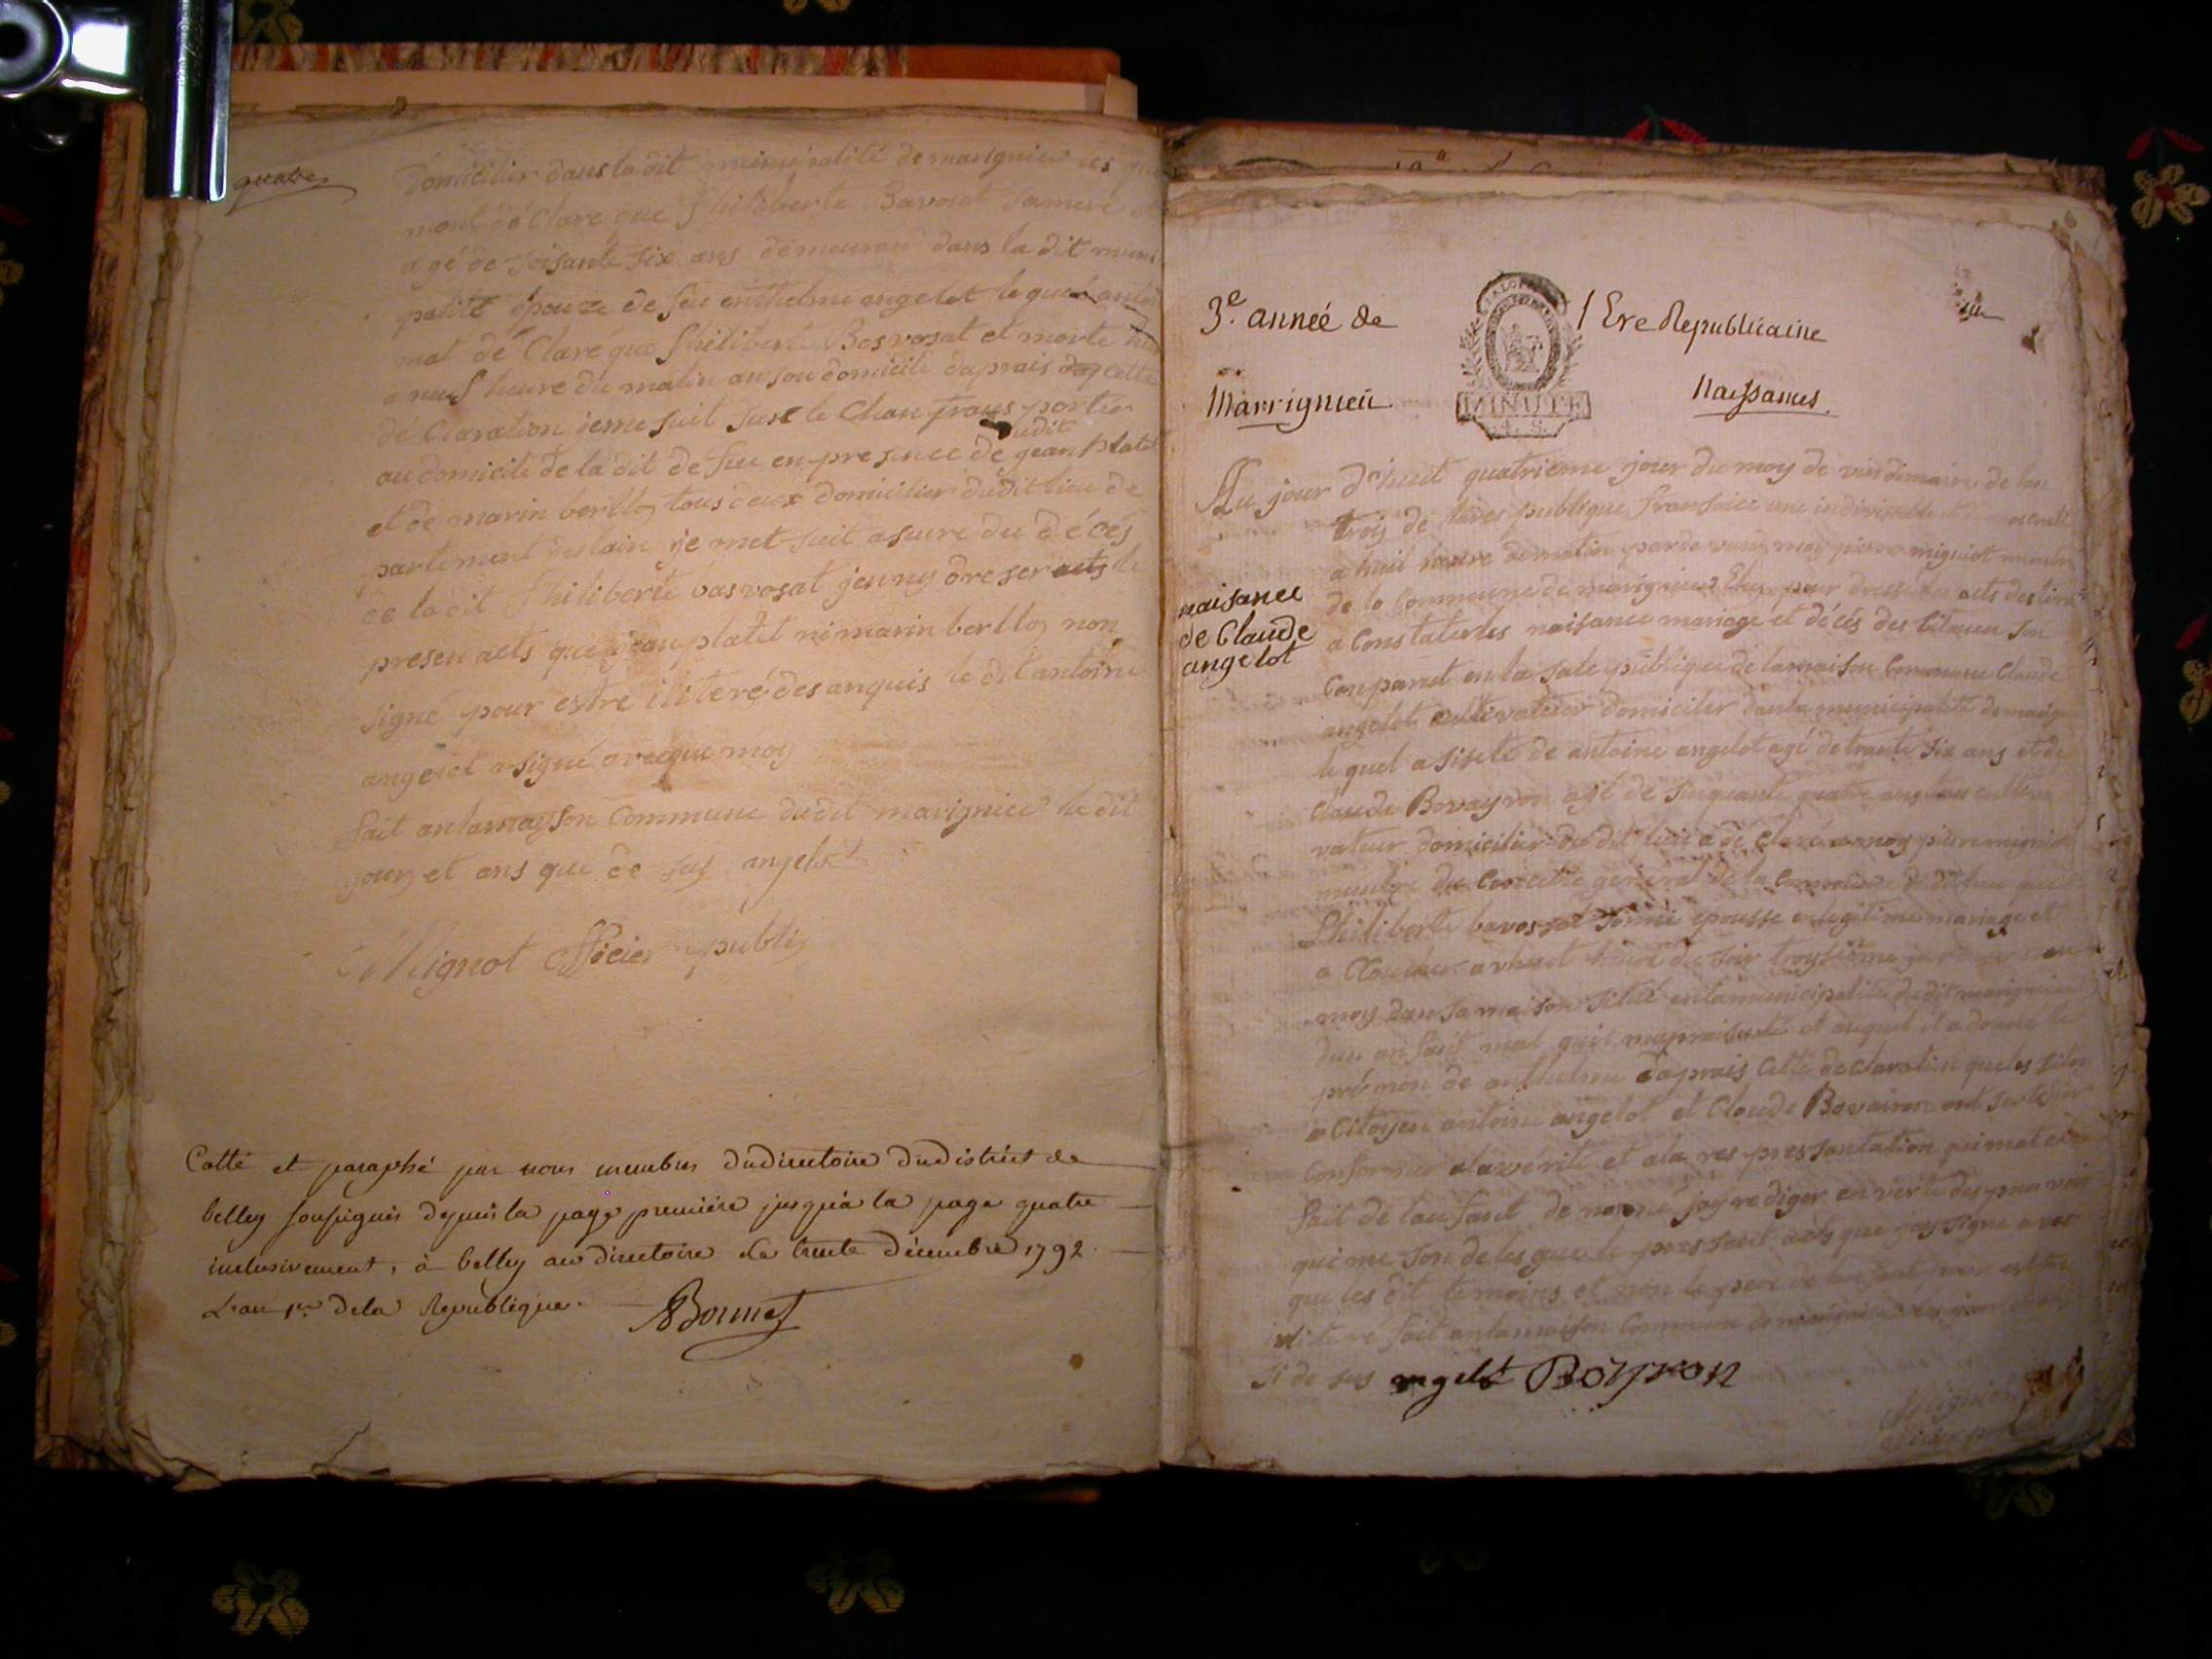 quatre
Domicilier dans la dit municipalité de marignieu les
mont dé Clare que philiberte Bavosat sa mere
agé de soisante six ans demeurant dans la dit muni
palité épouze de feu enthelme angelot le quel
mat dé Claré que philiberte Bosvosat et morte
a neuf heure du matin an son domicile daprais cette
dé Claration jeme suit sur le Chan transporter
audit
au domicile de la dit de feu en presence de jean platet
et de marin berlloz tous deux domicilier dudit lieu de
partement de lain je met suit asuré du décés
de la dit philiberte basvosat jen ny dreser acts le
presen acts que jean platet ni marin berlloz non
signé pour estre iliteré des anquis le dit antoine
angelot a signé avecque moy
fait an la mayson Commune dudit marignieu le dit
jour et ans que de sus angelot
Mignot officier public
Cotté et paraphé par nous membres du directoire du district de
belley soussignés depuis la page première jusqu'à la page quatre
inclusivement, à belley au directoire le trente décembre 1792.
L'an 1er de la Republique. Bonnet
3e. année de 1 Ere Republicaine
Marrignieu Naissances.
MINUTE
naisance
de Claude
angelot
Au jour dhuit quatrieme jour du moy de vindimaire de lan
trois de la res publique fransaise une indivisible et
a huit heure du matin par de vant moy pierre migniot membre
de la Commune de marignieu Elu pour dresser les acts des tiné
a Constater les naisance mariage et décés des Citoyen son
Conparut en la sale publique de la maison Commune Claude
angelot cultivateur domicilier dans la municipalité de marig
le quel asisté de antoine angelot agé de trante six ans et de
Claude Bovayron agé de sinquante quatre ans tous culti
vateur domicilier du dit lieu a dé Claré a moy pierre migniot
membre du Conseille général de la Commune du dit lieu que
philiberte bavosat son epousse en legitime mariage et
a Coucher a vhuit heure du soir troysième jour
moy dans sa maison situé en la municipalité du dit marignieu
dun anfant mal quil ma praisanté et auquel il a donné le
pré non de anthelme daprais cette déclaration que les sito
a Citoyen antoine angelot et Claude Bovairon ont
Conforme a la vérité et a la res pres santation qui mat eté
fait de lan fant de nommé jay rediger en vertu des pouvoir
qui me son delegue le pres sent acts que jay signé avec
que les dit temoins et non le pere de lanfant pour estre
iliteré fait an la maison Commune de marignieu les jour et
si de sus angelot Boyron